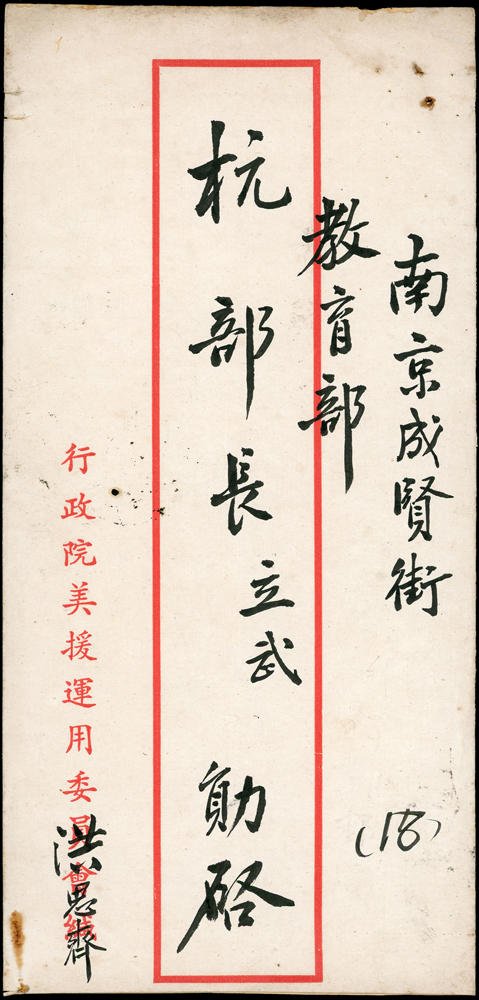 南京成賢街
(18)
教育部
杭部長立武勛啓
行政院美援運用委員會緘
洪思齊